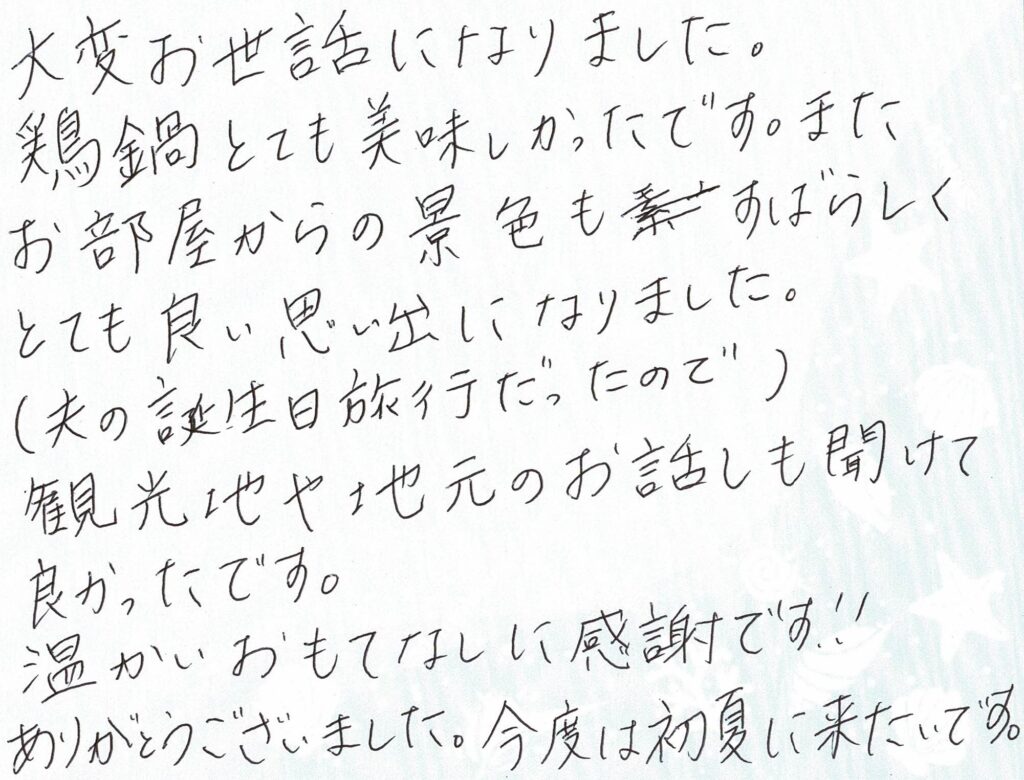 大変お世話になりました。
鶏鍋とても美味しかったです。また
お部屋からの景色もすばらしく
とても良い思い出になりました。
(夫の誕生日旅行だったので)
観光地や地元のお話しも聞けて
良かったです。
温かいおもてなしに感謝です!!
ありがとうございました。今度は初夏に来たいです。